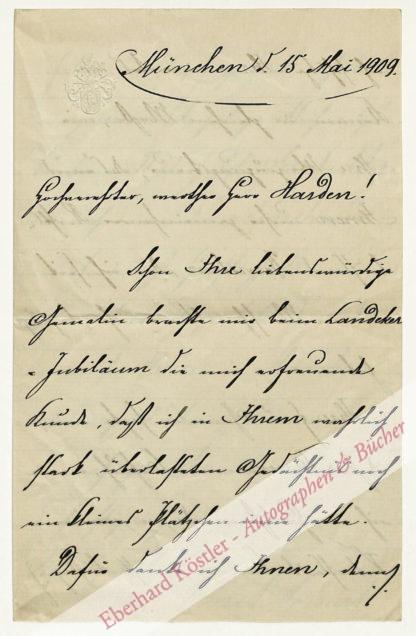 München d. 15 Mai 1909.
Hochverehrter, werther Herr Harden!
Schon Ihre liebenswürdige
Gemalin brachte mir beim Landeker
-Jubiläum die mich erfreuende
Kunde, daß ich in Ihrem wahrlich
stark überlasteten Gedächtniß noch
ein kleines Plätzchen inne hätte.
Dafür danke ich Ihnen, denn
Eberhard Köstler - Autographen & Bücher